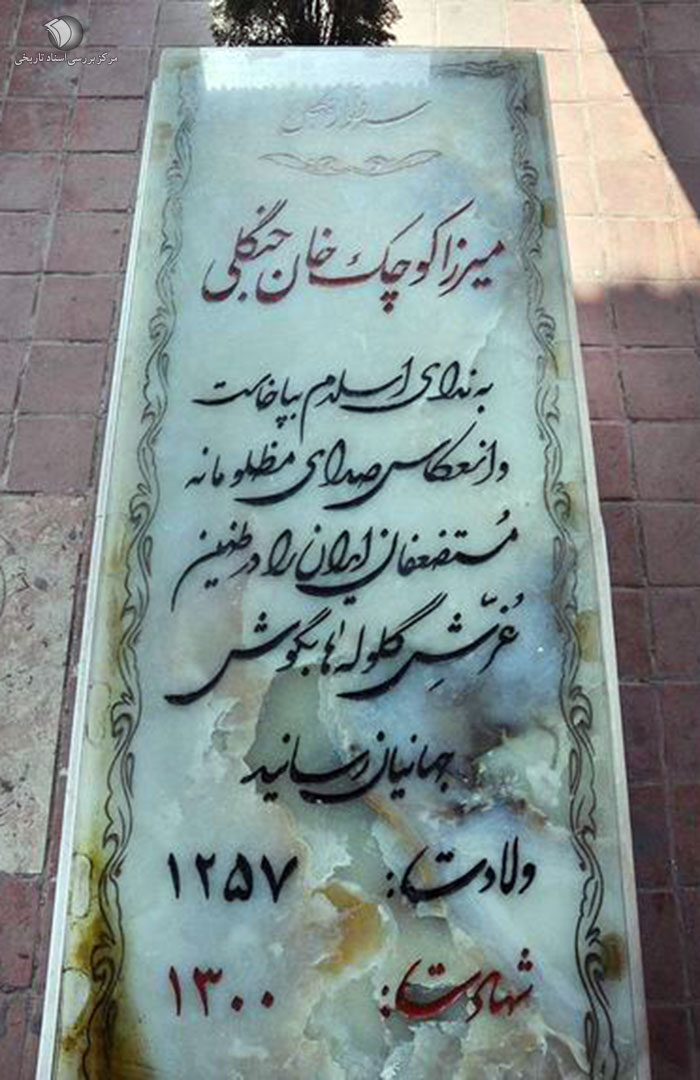 مرکز بررسی اسناد تاریخی
سردار جنگل
میرزا کوچک خان جنگلی
به ندای اسلام بپاخاست
و انعکاس صدای مظلومانه
مُستضعفان ایران را در طنین
غرّشِ گلوله ها بگوش
جهانیان رسانید
ولادت: ۱۲۵۷
شهادت: ۱۳۰۰